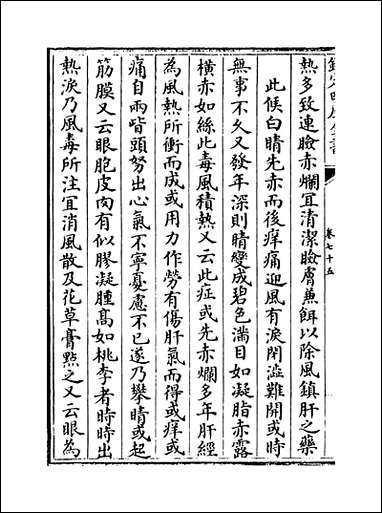 欽定四庫全書
卷七十五
熱多致連瞼赤爛宜清潔瞼膚兼餌以除風鎮肝之藥
此候白睛先赤而後痒痛迎風有淚閉澁難開或時
無事不久又發年深則睛變成碧色滿目如凝脂赤露
橫赤如絲此毒風積熱又云此症或先赤爛多年肝經
為風熱所衝而成或用力作勞有傷肝氣而得或痒或
痛自兩眥頭努出心氣不寧憂慮不已遂乃攀睛或起
筋膜又云眼胞皮肉有似膠凝腫髙如桃李者時時出
熱淚乃風毒所注宜消風散及花草膏點之又云眼為